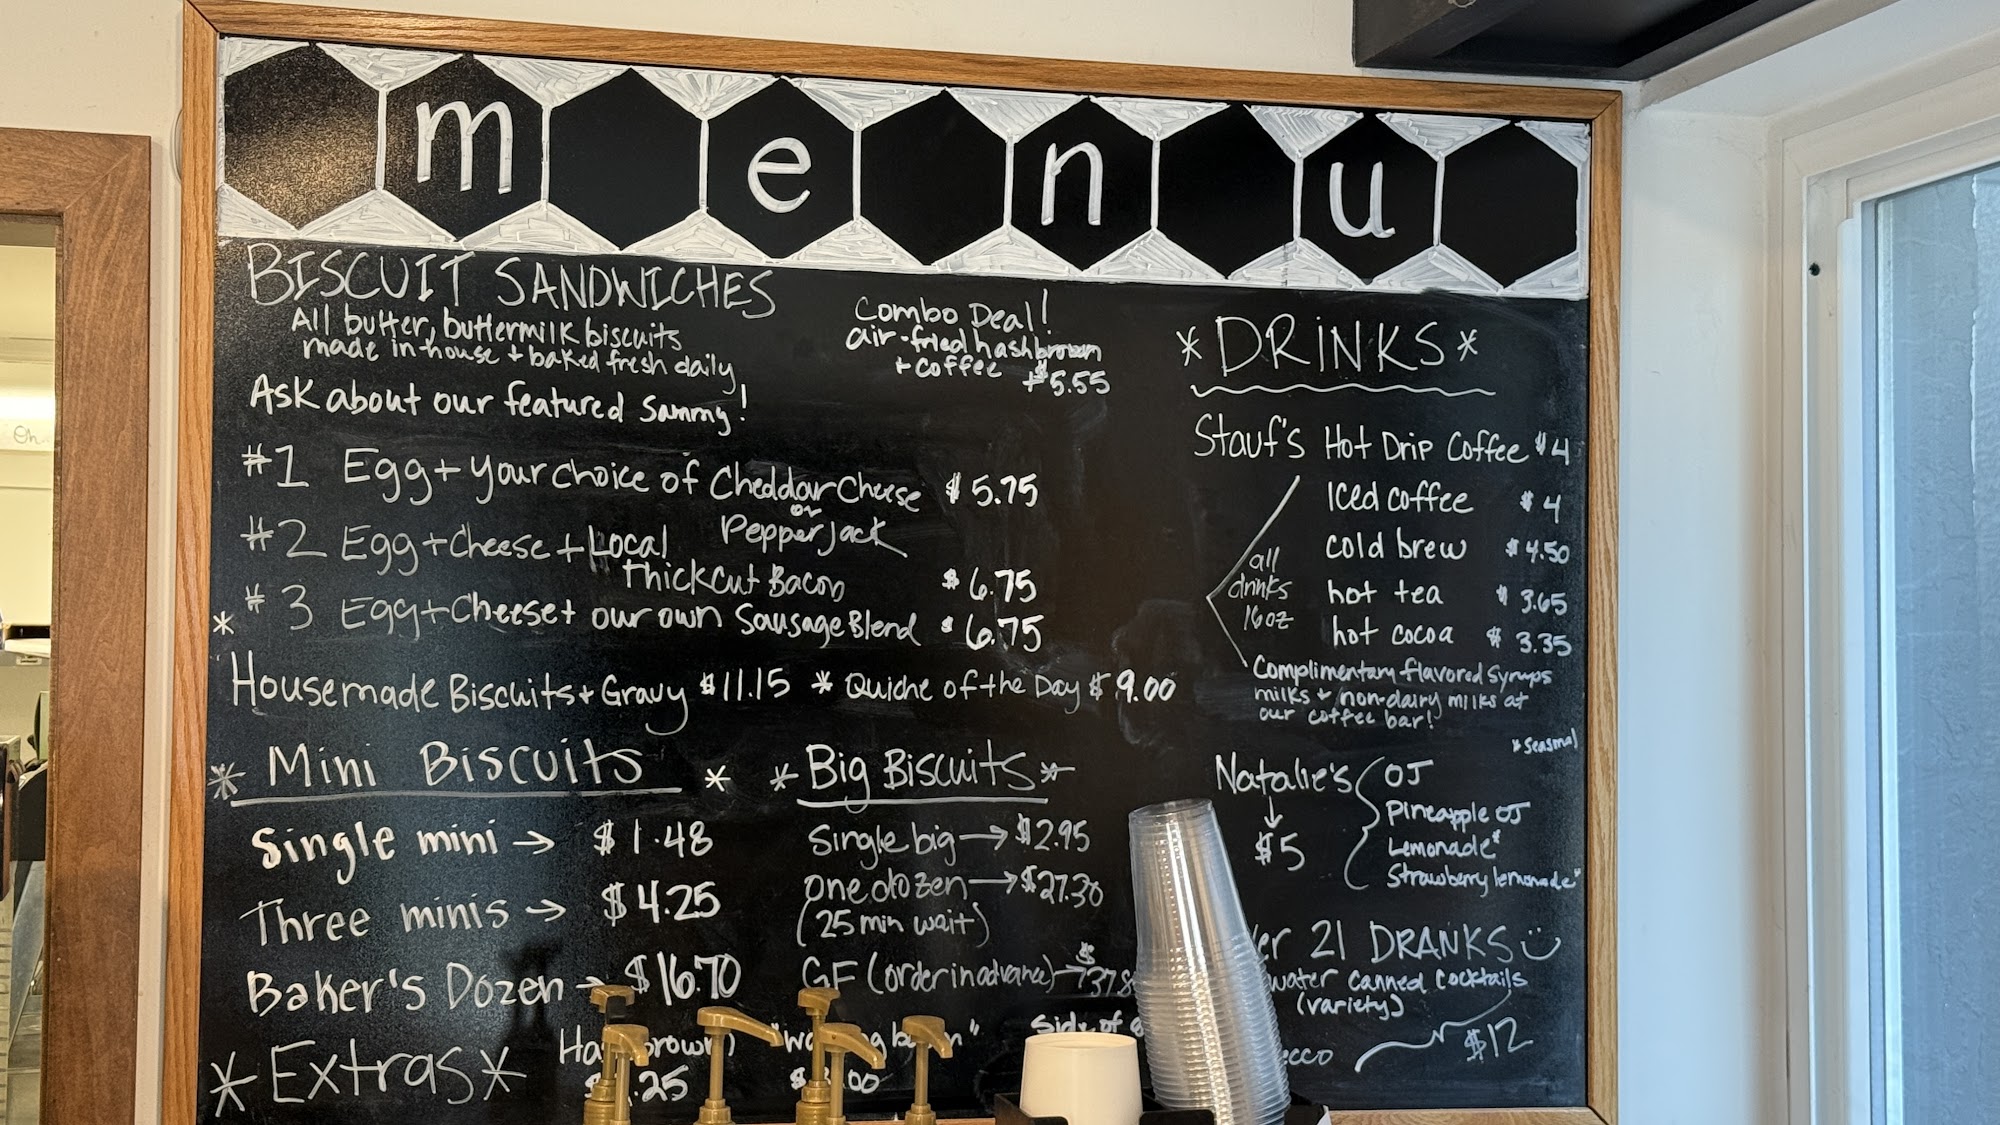 menu
BISCUIT SANDWICHES
All butter, buttermilk biscuits
made in-house + baked fresh daily
Ask about our featured Sammy!
Combo Deal!
air-fried hashbrown
+ coffee +$5.55
#1 Egg + your choice of Cheddar Cheese $5.75
or
Pepper Jack
#2 Egg + Cheese + Local
Thick Cut Bacon $6.75
* #3 Egg + Cheese + our own Sausage Blend $6.75
Housemade Biscuits + Gravy $11.15 * Quiche of the Day $9.00
* Mini Biscuits *
Single mini → $1.48
Three minis → $4.25
Baker's Dozen → $16.70
* Big Biscuits *
Single big → $2.95
one dozen → $27.30
(25 min wait)
GF (order in advance) →
*Extras*
Side of
*DRINKS*
Stauf's Hot Drip Coffee $4
Iced coffee $4
cold brew $4.50
hot tea $3.65
hot cocoa $3.35
all
drinks
16oz
Complimentary flavored syrups
milks + non-dairy milks at
our coffee bar!
*seasonal
Natalie's
↓
$5
OJ
Pineapple OJ
Lemonade*
Strawberry lemonade*
21 DRANKS
water canned cocktails
(variety)
$12